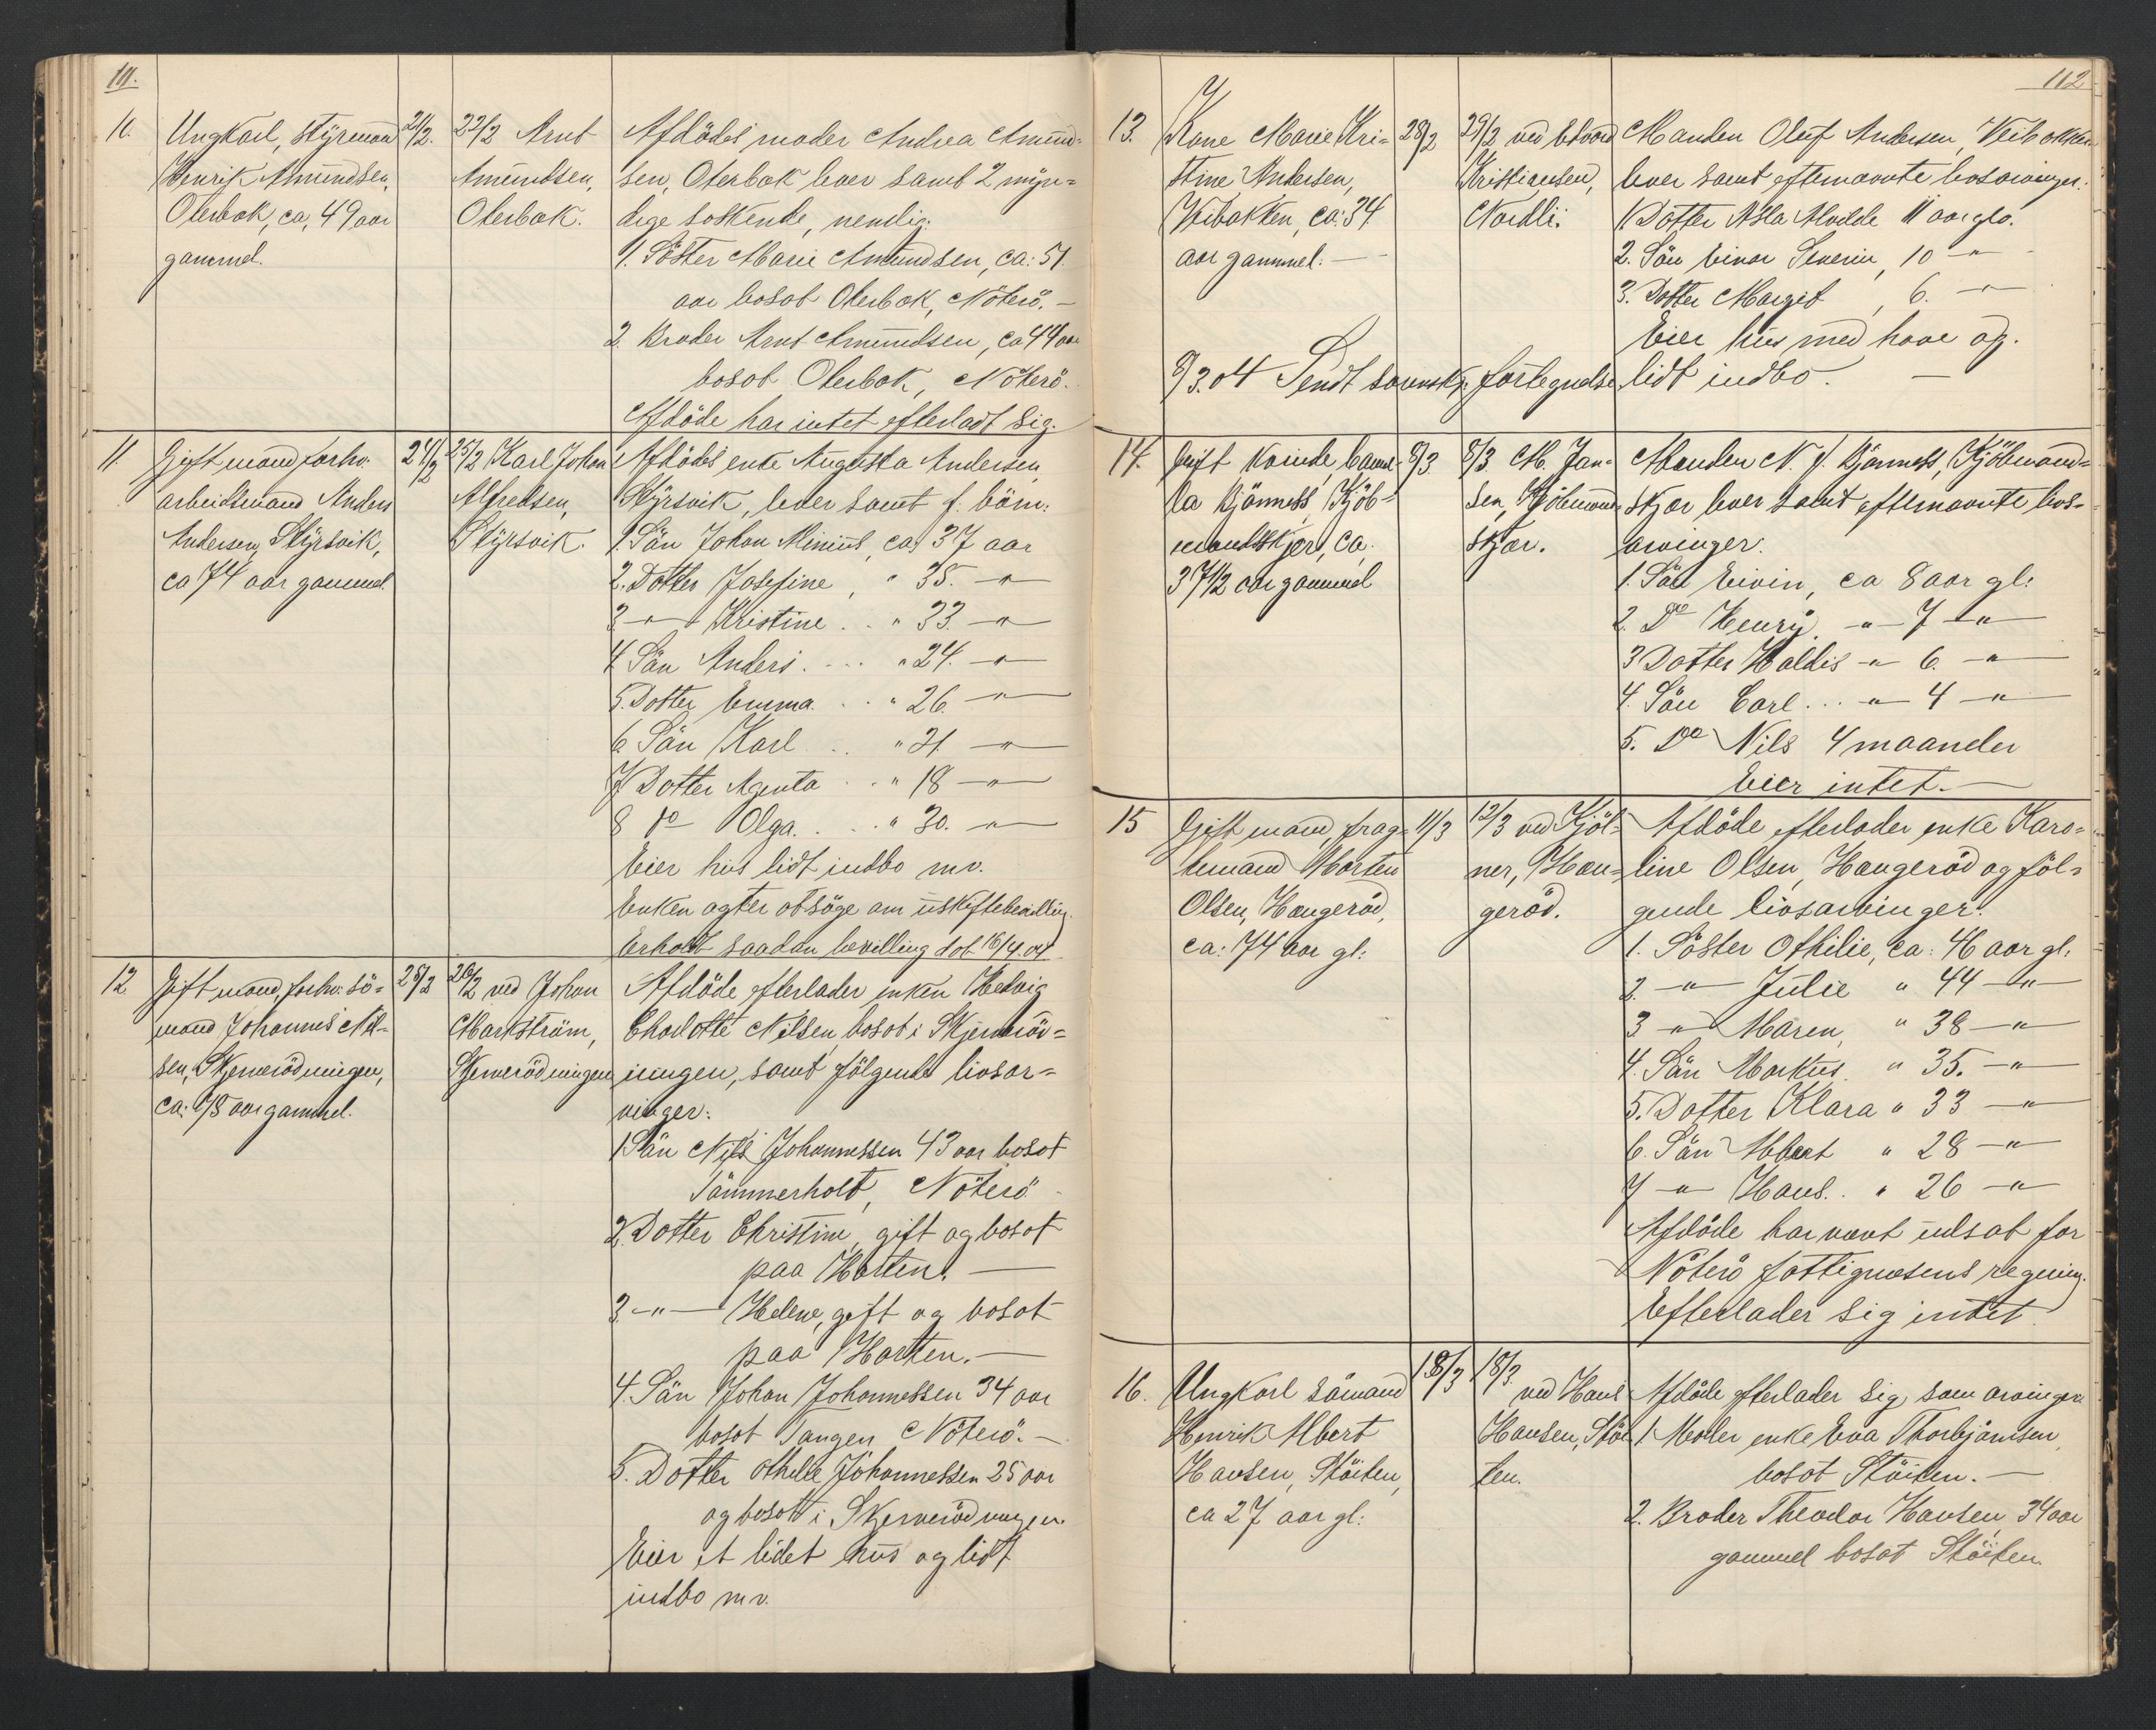 111.
10.
Ungkarl, styrmand
Henrik Amundsen,
Oterbæk, ca, 49 aar
gammel.
21/2.
22/2 Arnt
Amundsen,
Oterbæk.
Afdödes moder Andrea Amund=
sen, Oterbæk lever samt 2 myn=
dige söskende, nemlig:
1. Söster Marie Amundsen, ca: 51
aar bosat Oterbæk, Nöterö. —
2. Broder Arnt Amundsen, ca 44 aar
bosat Oterbæk, Nöterö.
Afdöde har intet efterladt sig.
11.
Gift mand forhv.
arbeidsmand Anders
Andersen, Styrsvik,
ca 74 aar gammel.
24/2
25/2 Karl Johan
Alfredsen,
Styrsvik.
Afdödes enke Augusta Andersen,
Styrsvik, lever samt f. börn:
1. Sön Johan Minius, ca 37 aar
2. Dotter Josefine, " 35. —"—
3 —"— Kristine . . " 33. —"—
4. Sön Anders . . . . " 24. —"—
5. Dotter Emma . . . " 26 —"—
6. Sön Karl . . . " 21 —"—
7 Dotter Agenta . . . " 18 —"—
8 do Olga . . . . " 30. —"—
Eier hus lidt indbo m.v.
Enken agter at söge om uskiftebevilling.
Erholdt saadan bevilling dat. 16/4.04
12.
Gift mand, forhv. sö=
mand Johannes Nil=
sen, Skjerverödningen,
ca: 78 aar gammel.
25/2
26/2 ved Johan
Markström,
Skjerverödningen
Afdöde efterlader enken Hedvig
Charlotte Nilsen, bosat i Skjerveröd=
ningen, samt fölgende livsar=
vinger:
1. Sön Nils Johannessen 43 aar bosat
Tömmerholt, Nöterö
2. Dotter Christine, gift og bosat
paa Horten. —
3 —"— Helene, gift og bosat
paa Horten. —
4. Sön Johan Johannessen 34 aar
bosat Tangen Nöterö. —
5. Dotter Othilie Johannessen 25 aar
og bosat i Skjerverödningen.
Eier et lidet hus og lidt
indbo m.v.
112
13.
Kone Marie Kri=
stine Andersen,
Veibakken, ca: 34
aar gammel. —
28/2
29/2 ved Edvard
Kristiansen,
Nordli.
Manden Oluf Andersen, Veibakken
lever samt efternævnte livsarvinger:
1. Dotter Asta Modde 11 aar gl.
2. Sön Einar Severin, 10 —"—
3. Dotter Margit, 6. —"—
Eier hus med have og
lidt indbo. —
8/3.04 Sendt fortegnelse
14.
Gift kvinde Camil=
la Bjönness, Kjöb=
mandskjær, ca.
37 1/2 aar gammel
8/3
8/3 M. Jan=
sen, Kjöbmand=
skjær.
Manden N. J. Bjönness, Kjöbmand=
skjær lever samt efternævnte livs=
arvinger.
1. Sön Eivin, ca 8 aar gl.
2. Do Henry. —"— 7 —"—
3 Dotter Haldis —"— 6. —"—
4. Sön Carl . . . —"— 4 —"—
5. Do Nils 4 maaneder
Eier intet. —
15
Gift mand, frag=
temand Morten
Olsen, Haugeröd,
ca: 74 aar gl.
11/3
12/3 ved Kjöl=
ner, Hau=
geröd.
Afdöde efterlader enke Karo=
line Olsen, Haugeröd og föl=
gende livsarvinger:
1. Söster Othilie, ca: 46 aar gl.
2. —"— Julie " 44 —"—
3 —"— Maren, " 38 —"—
4. Sön Markus. " 35. —"—
5. Dotter Klara " 33 —"—
6. Sön Albert " 28 —"—
7 —"— Hans. . " 26 —"—
Afdöde har været udsat for
Nöterö fattigvæsens regning.
Efterlader sig intet
16.
Ungkarl sömand
Henrik Albert
Hansen, Stöiten,
ca 27 aar gl.
18/3
18/3
ved Hans
Hansen, Stöi=
ten.
Afdöde efterlader sig som arvinger.
1 Moder enke Eva Thorbjörnsen,
bosat Stöiten. —
2. Broder Theodor Hansen 34 aar
gammel bosat Stöiten.